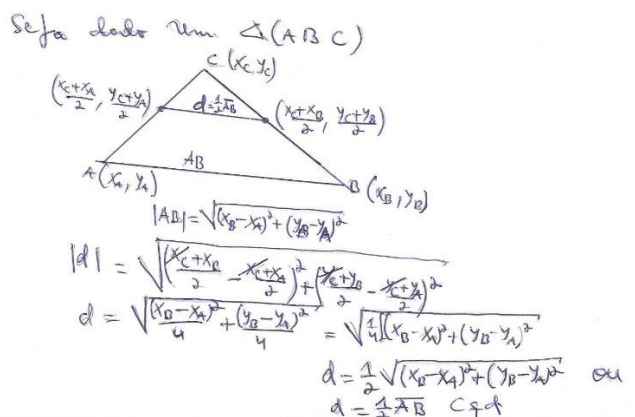 Seja dado um Δ(ABC)
C (xc yc)
(xc+xA/2, yc+yA/2)
d=1/2 AB
(xc+xB/2, yc+yB/2)
AB
A(xA, yA)
B (xB, yB)
|AB| = √(xB-xA)²+(yB-yA)²
|d| = √(xc+xB/2 - xc+xA/2)²+(yc+yB/2 - yc+yA/2)²
d = √(xB-xA)²/4 + (yB-yA)²/4 = √1/4[(xB-xA)²+(yB-yA)²
d = 1/2 √(xB-xA)²+(yB-yA)² ou
d = 1/2 AB cqd